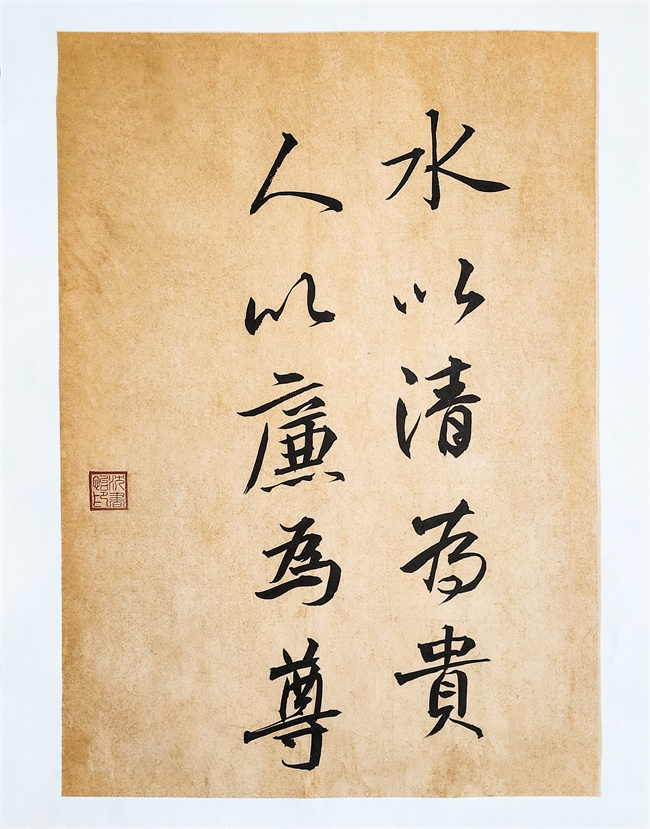 水以清为貴
人以廉為尊